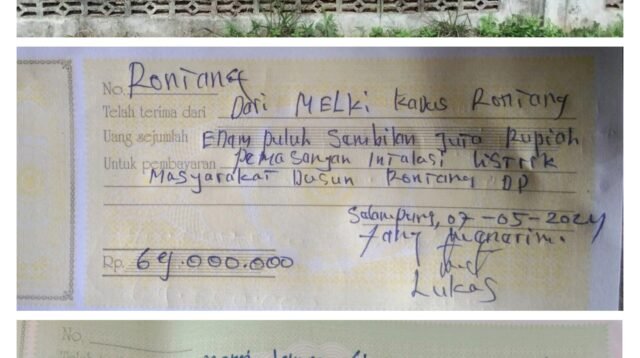 No. Rontang
Telah terima dari Dari MELKi Kadus Rontang
Uang sejumlah Enam puluh Sambilan Juta Rupiah
Untuk pembayaran pemasangan Intalasi Listrik
Masyarakat Dusun Rontang DP
Salampung, 07-05-2024
Yang menarima.
Rp. 69.000.000
Lukas
No.